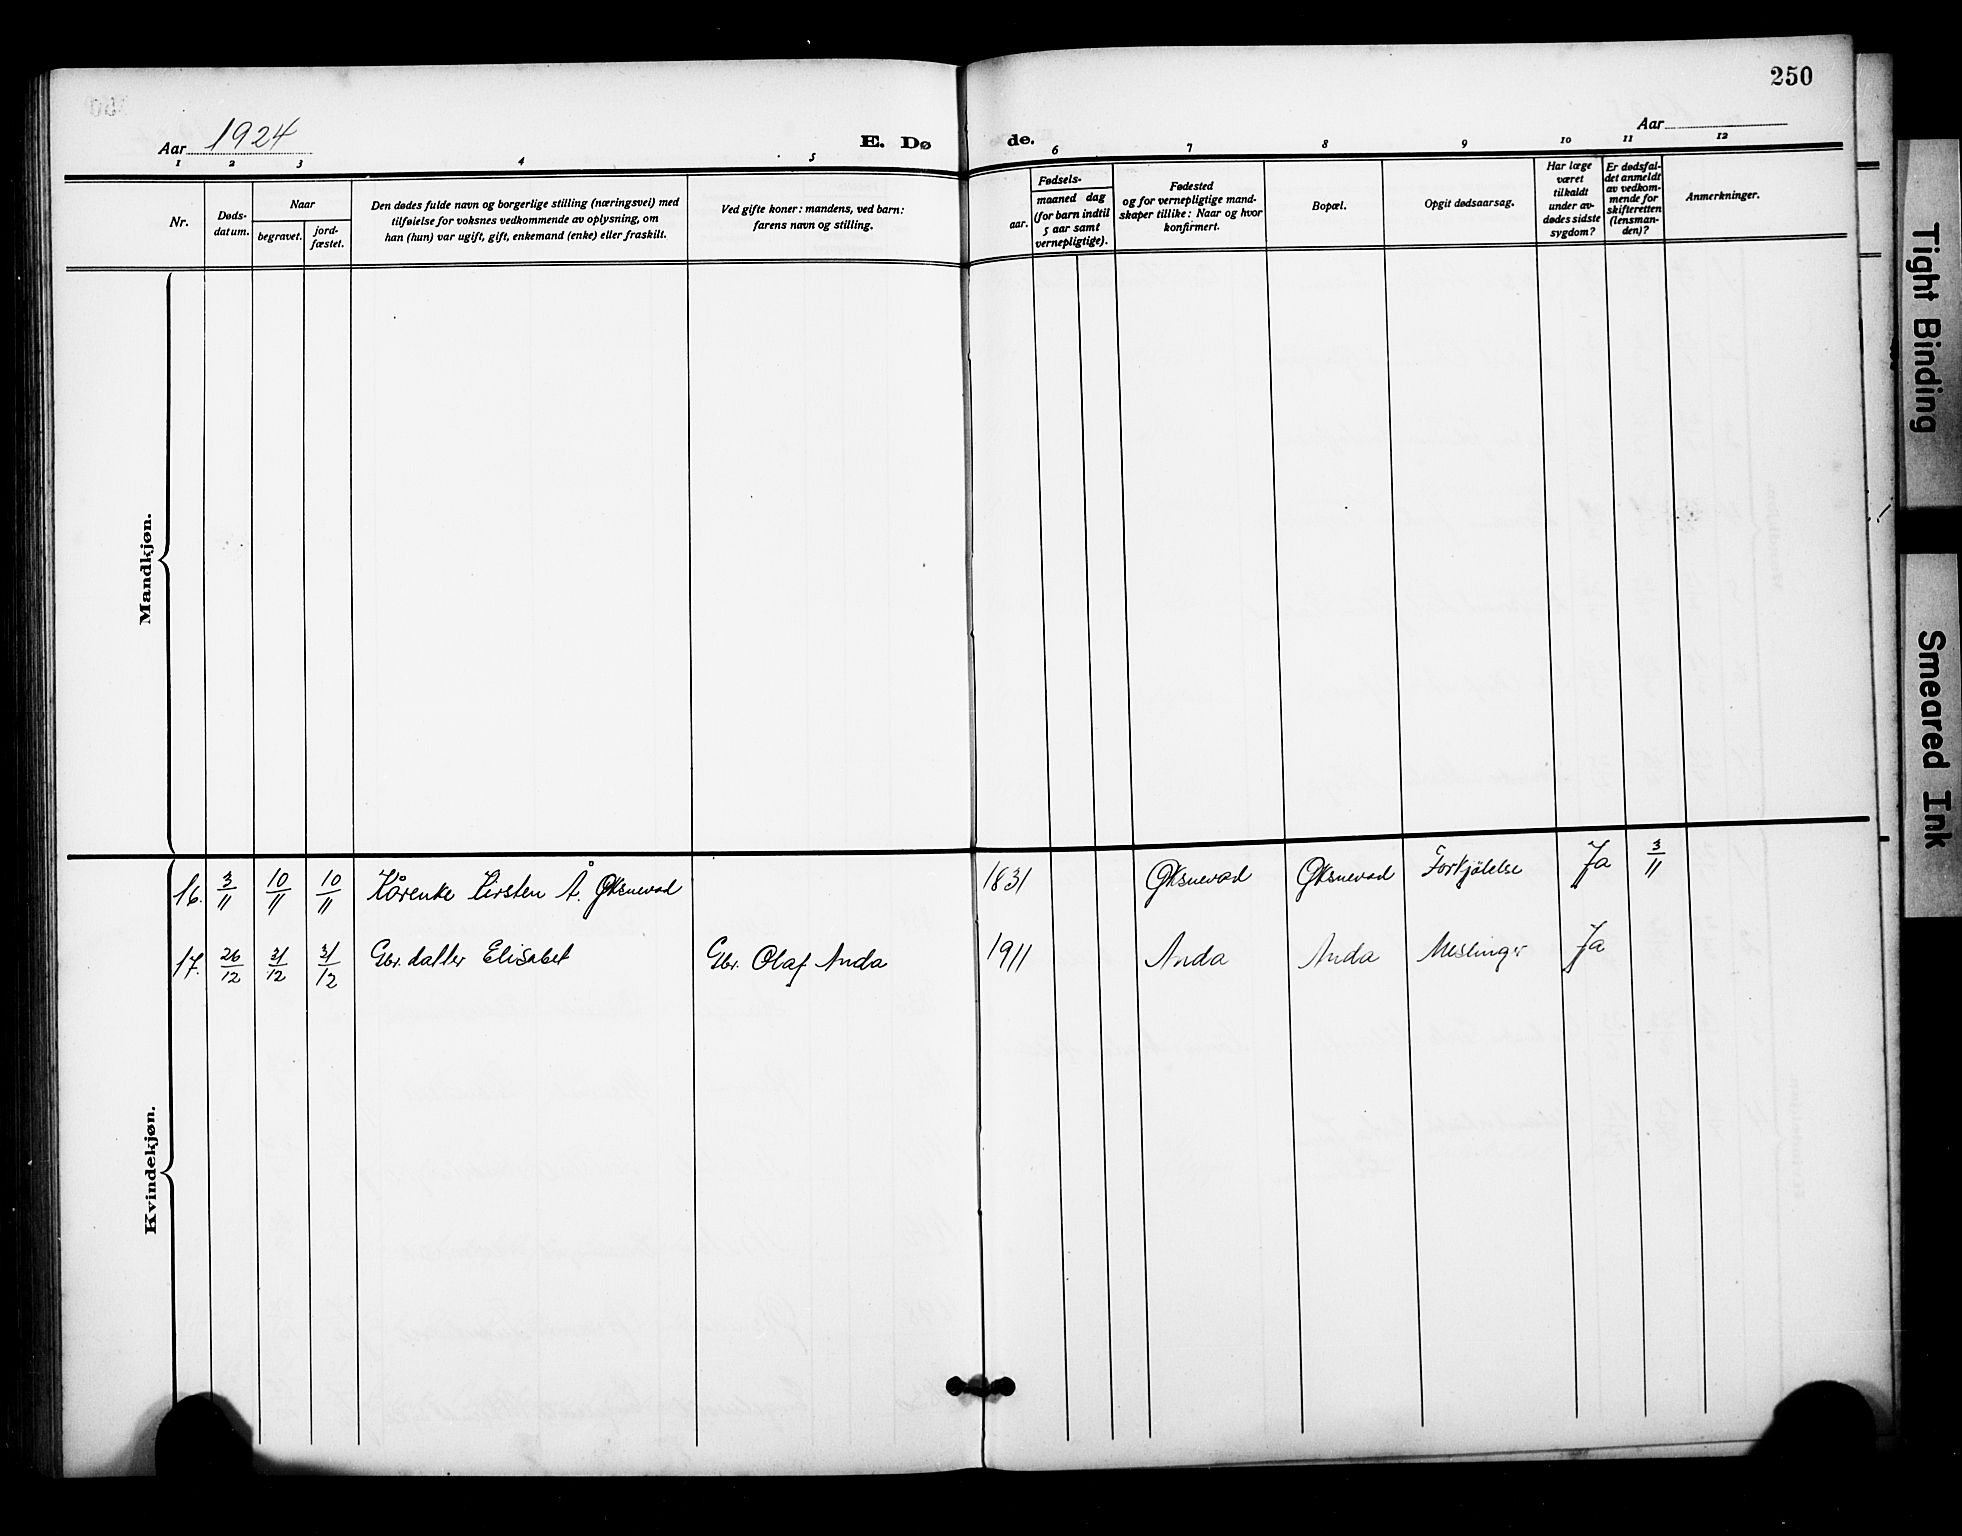 250
Aar 1924
E. Døde.
Aar
1 2 3 4 5 6 7 8 9 10 11 12
Nr.
Døds-
datum.
Naar
begravet.
jord-
fæstet.
Den dødes fulde navn og borgerlige stilling (næringsvei) med
tilføielse for voksnes vedkommende av oplysning, om
han (hun) var ugift, gift, enkemand (enke) eller fraskilt.
Ved gifte koner: mandens, ved barn:
farens navn og stilling.
Fødsels-
aar.
maaned dag
(for barn indtil
5 aar samt
vernepligtige).
Fødested
og for vernepligtige mand-
skaper tillike: Naar og hvor
konfirmert.
Bopæl.
Opgit dødsaarsag.
Har læge
været
tilkaldt
under av-
dødes sidste
sygdom?
Er dødsfal-
det anmeldt
av vedkom-
mende for
skifteretten
(lensman-
den)?
Anmerkninger.
Mandkjøn.
Kvindekjøn.
16. 3/11 10/11 10/11 Kårenke Kirsten Å. Øksnevad 1831 Øksnevad Øksnevad Forkjølelse Ja 3/11
17. 26/12 31/12 31/12 Gbr. datter Elisabet Gbr. Olaf Anda 1911 Anda Anda Meslinger Ja
Tight Binding
Smeared Ink